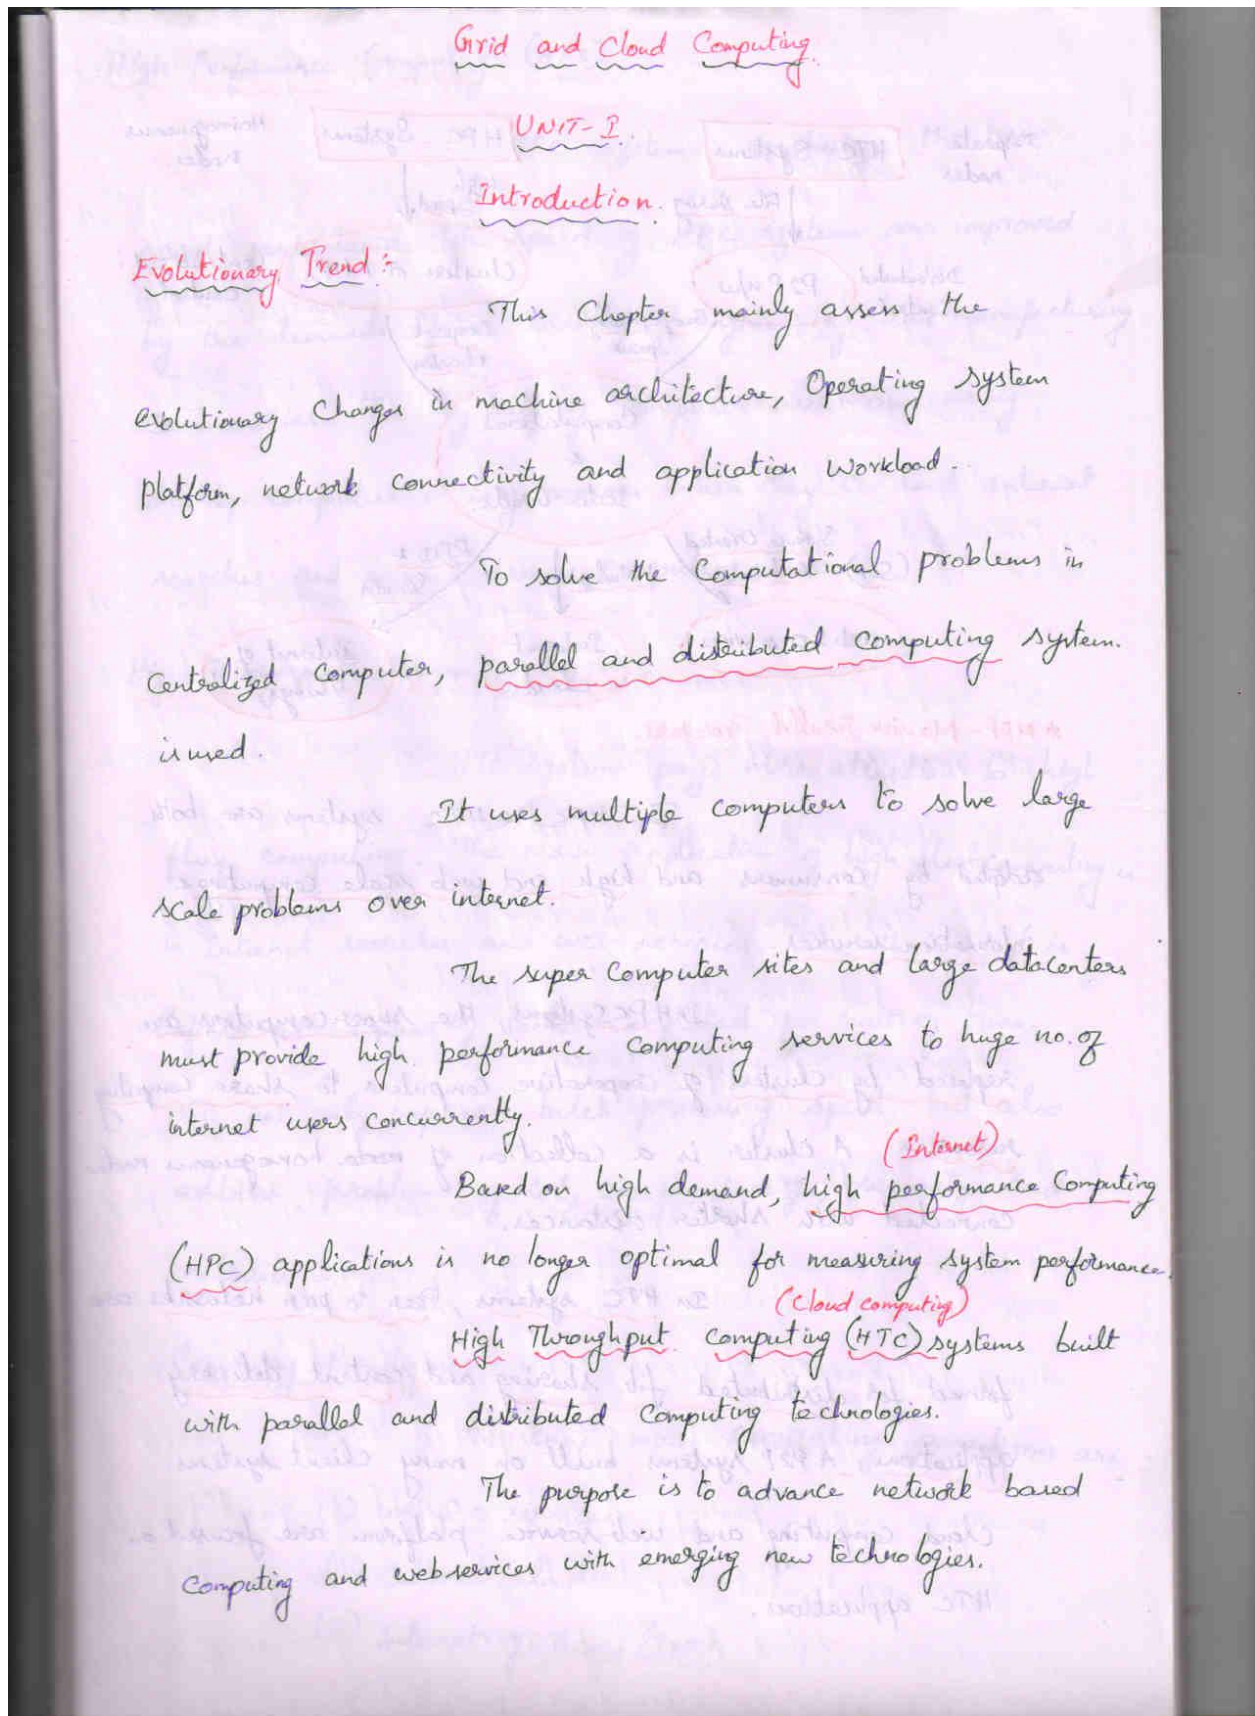 Grid and Cloud Computing.
UNIT-I.
Introduction.
Evolutionary Trend:-
This Chapter mainly assess the
evolutionary changes in machine architecture, Operating system
platform, network connectivity and application workload.
To solve the Computational problems in
Centralized Computer, parallel and distributed computing system.
is used.
It uses multiple computers to solve large
scale problems over internet.
The super Computer sites and large datacenters
must provide high performance Computing services to huge no. of
internet users concurrently.
(Internet)
Based on high demand, high performance Computing
(HPC) applications is no longer optimal for measuring system performance.
(Cloud computing)
High Throughput Computing (HTC) systems built
with parallel and distributed Computing technologies.
The purpose is to advance network based
Computing and webservices with emerging new technologies.